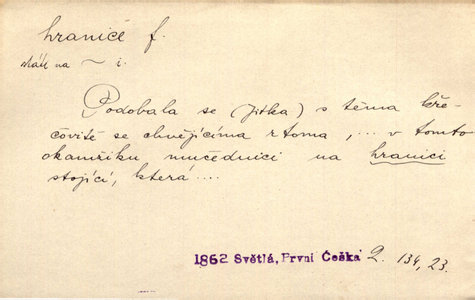 hranice f.
státi na ~ i.
Podobala se (Jitka) s těma kře-
čovitě se chvějícíma rtoma, ... v tomto
okamžiku mučednici na hranici
stojící, která ....
1862 Světlá, První Češka 2. 134, 23.